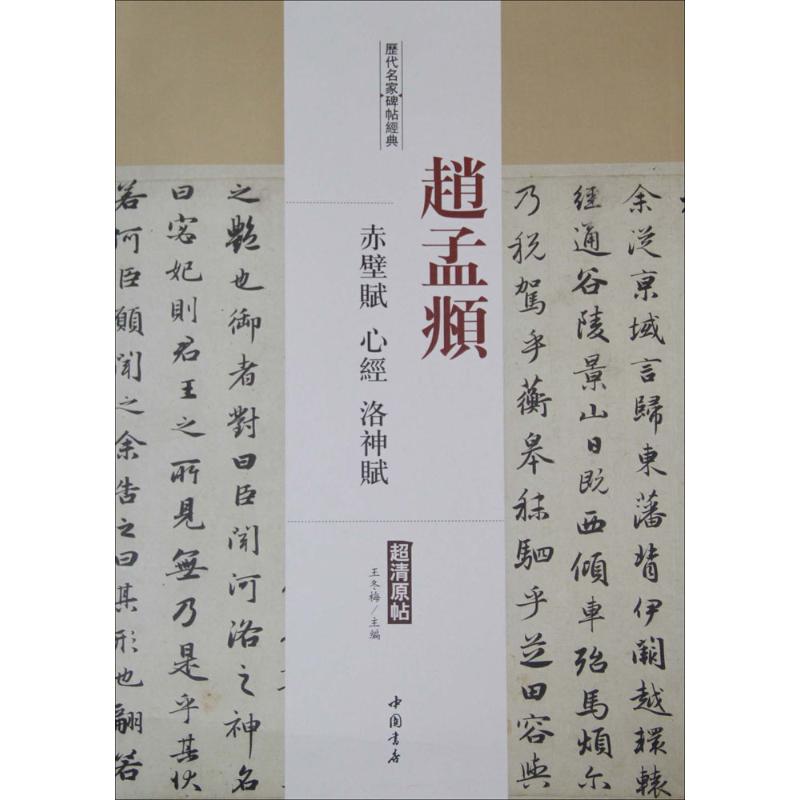 余從京域言歸東藩背伊闕越轘轅
經通谷陵景山日既西傾車殆馬煩尔
乃税駕乎蘅皋秣駟乎芝田容與
趙孟頫
歷代名家碑帖經典
赤壁賦 心經 洛神賦
超清原帖
王冬梅/主編
中国書店
之艷也御者對曰臣聞河洛之神名
曰宓妃則君王之所見無乃是乎其狀
若何臣願聞之余告之曰其形也翩若